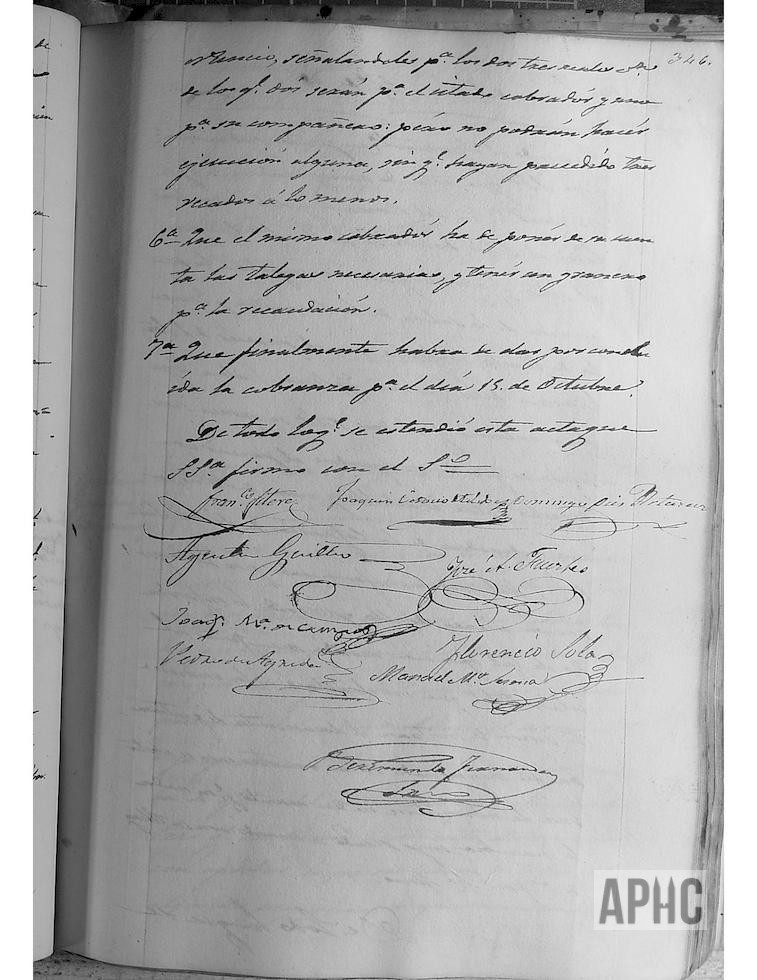 346.
señalandoles p.ª los dos tres reales
de los q.e dos serán p.ª el citado cobradór y uno
p.ª su compañero: pero no podrán hacér
ejecución alguna, sin q.e hayan precedido tres
recados á lo menos.
6.ª Que el mismo cobradór ha de ponér de su cuen
ta las talegas necesarias, y tenér un granero
p.ª la recaudación.
7.ª Que finalmente habrá de dar por conclu
ida la cobranza p.ª el día 15. de Octubre.
De todo lo q.e se estendió esta acta que
SS.ª firmo con el S.
Joaquin Domingo
Agustin Guillen José A. Fuertes
Joaq.n M.ª Florencio Sola
Pedro de Agreda Manuel M.ª